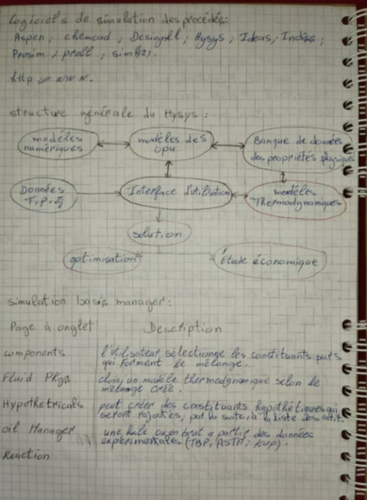 Logiciels de simulation des procédés:
Aspen, chemcad, Design II, Hysys, Ideas, Indiss,
Prosim, proII, sim42).
http www.
structure générale du Hysys:
modèles numériques
modèles des opu
Banque de données des propriétés physiques
Données T, P, Zj
Interface d'utilisation
modèles thermodynamiques
solution
optimisation
Étude économique
simulation basis manager:
Page à onglet Description
components l'utilisateur sélectionne les constituants purs
qui forment le mélange.
Fluid Pkgs choix un modèle thermodynamique selon le
mélange créé.
Hypotheticals peut créer des constituants hypothétiques qui
seront rajoutés, la liste des
oil Manager une huile brut a partir des données
expérimentales (TBP, ASTM,
Reaction